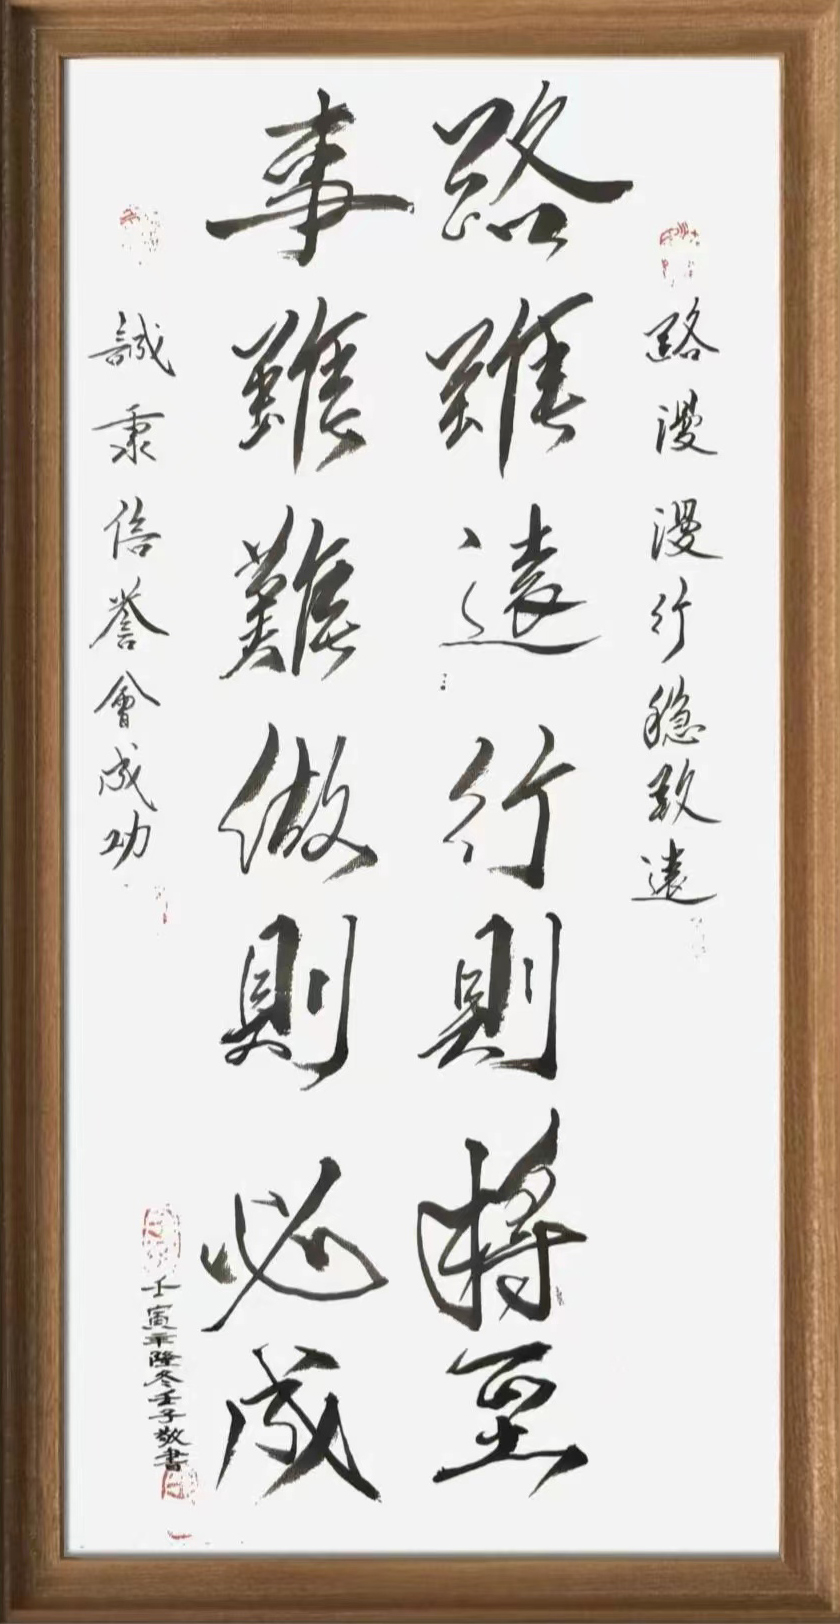 路漫漫行稳致遠
路雖遠行則將至
事雖難做則必成
誠秉信誉會成功
壬寅年隆冬壬子敬書